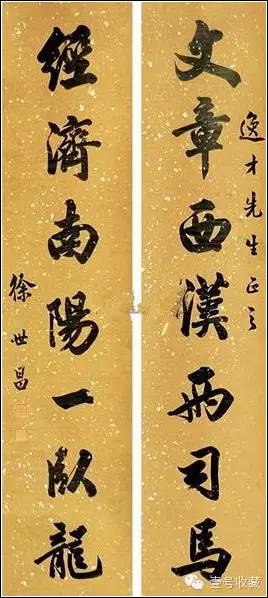 逸才先生正之
文章西漢兩司馬
經濟南陽一臥龍
徐世昌
壹号收藏